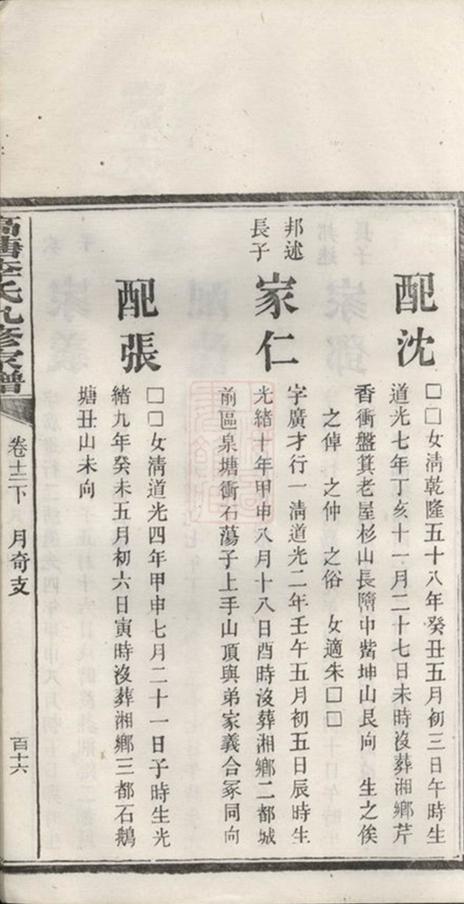 配沈
□□女清乾隆五十八年癸丑五月初三日午時生
道光七年丁亥十一月二十七日未時沒葬湘鄉芹
香衝盤箕老屋杉山長隮中嵅坤山艮向 生之俟
之倬 之仲 之俗 女適朱□□
邦述
長子
家仁
字廣才行一清道光二年壬午五月初五日辰時生
光緒十年甲申八月十八日酉時沒葬湘鄉二都城
前區泉塘衝石蕩子上手山頂與弟家義合冢同向
配張
□□女清道光四年甲申七月二十一日子時生光
緒九年癸未五月初六日寅時沒葬湘鄉三都石鵝
塘丑山未向
高塘李氏九修家譜
卷十二下
月奇支
百十六